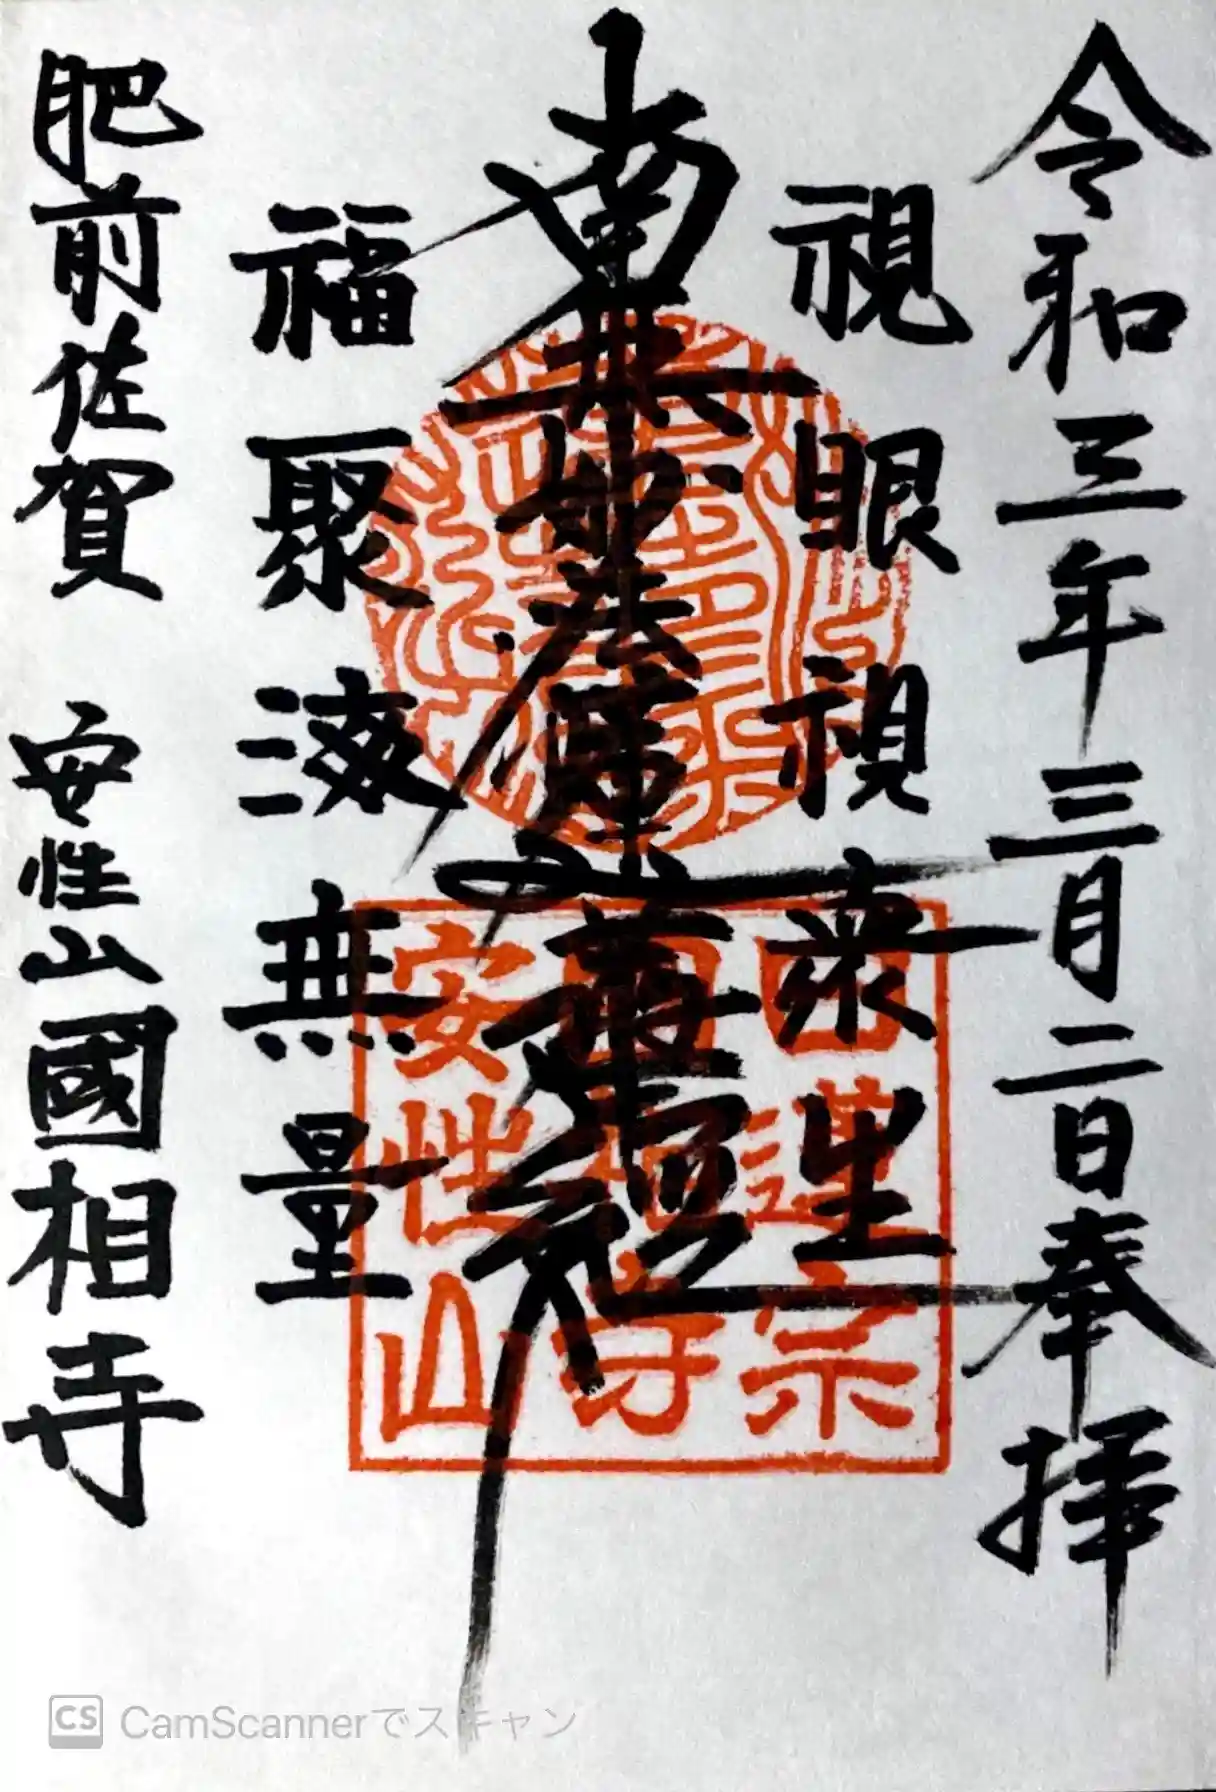 令和三年三月二日奉拝
視眼視衆生
南無妙法蓮華経
福聚海無量
肥前佐賀 安性山國相寺
日蓮宗
國相寺
安性山
CS CamScannerでスキャン